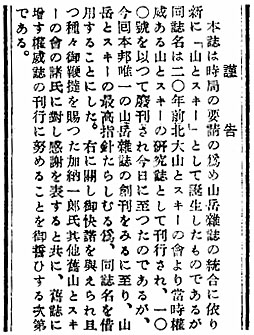 謹告
本誌は時局の要請の爲め山岳雑誌の統合に依り
新に「山とスキー」として誕生したものであるが
同誌名は二〇年前北大山とスキーの會より當時權
威ある山とスキーの研究誌として刊行され、一〇
〇號を以つて廢刊され今日に至つたのであるが、
今回本邦唯一の山岳雜誌の創刊をみるに至り、山
岳とスキーの最高指針たらしむる爲、同誌名を借
用することにした。右に關し御快諾を與えられ且
つ種々御鞭撻を賜つた加納一郎氏其他舊山とスキ
ーの會の諸氏に對し感謝を表すると共に、舊誌に
増す權威誌の刊行に努めることを御誓ひする次第
である。